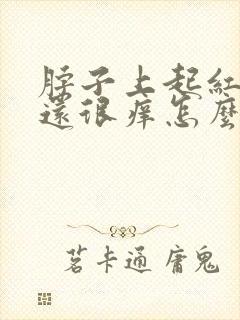 脖子上起紅
還很痒怎麼
茗卡通 庸鬼